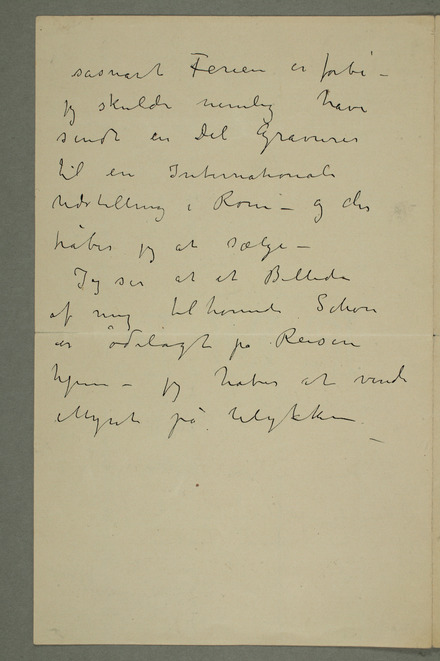 såsnart Ferien er forbi –
jeg skulde nemlig have
sendt en Del Gravurer
til en Internationale
Udstilling i Rom – og der
håber jeg at sælge –
Jeg ser at et Billede
af mig tilhørende Schou
er ødelagt på Reisen
hjem – jeg håber at vinde
Mynt på Ulykken –